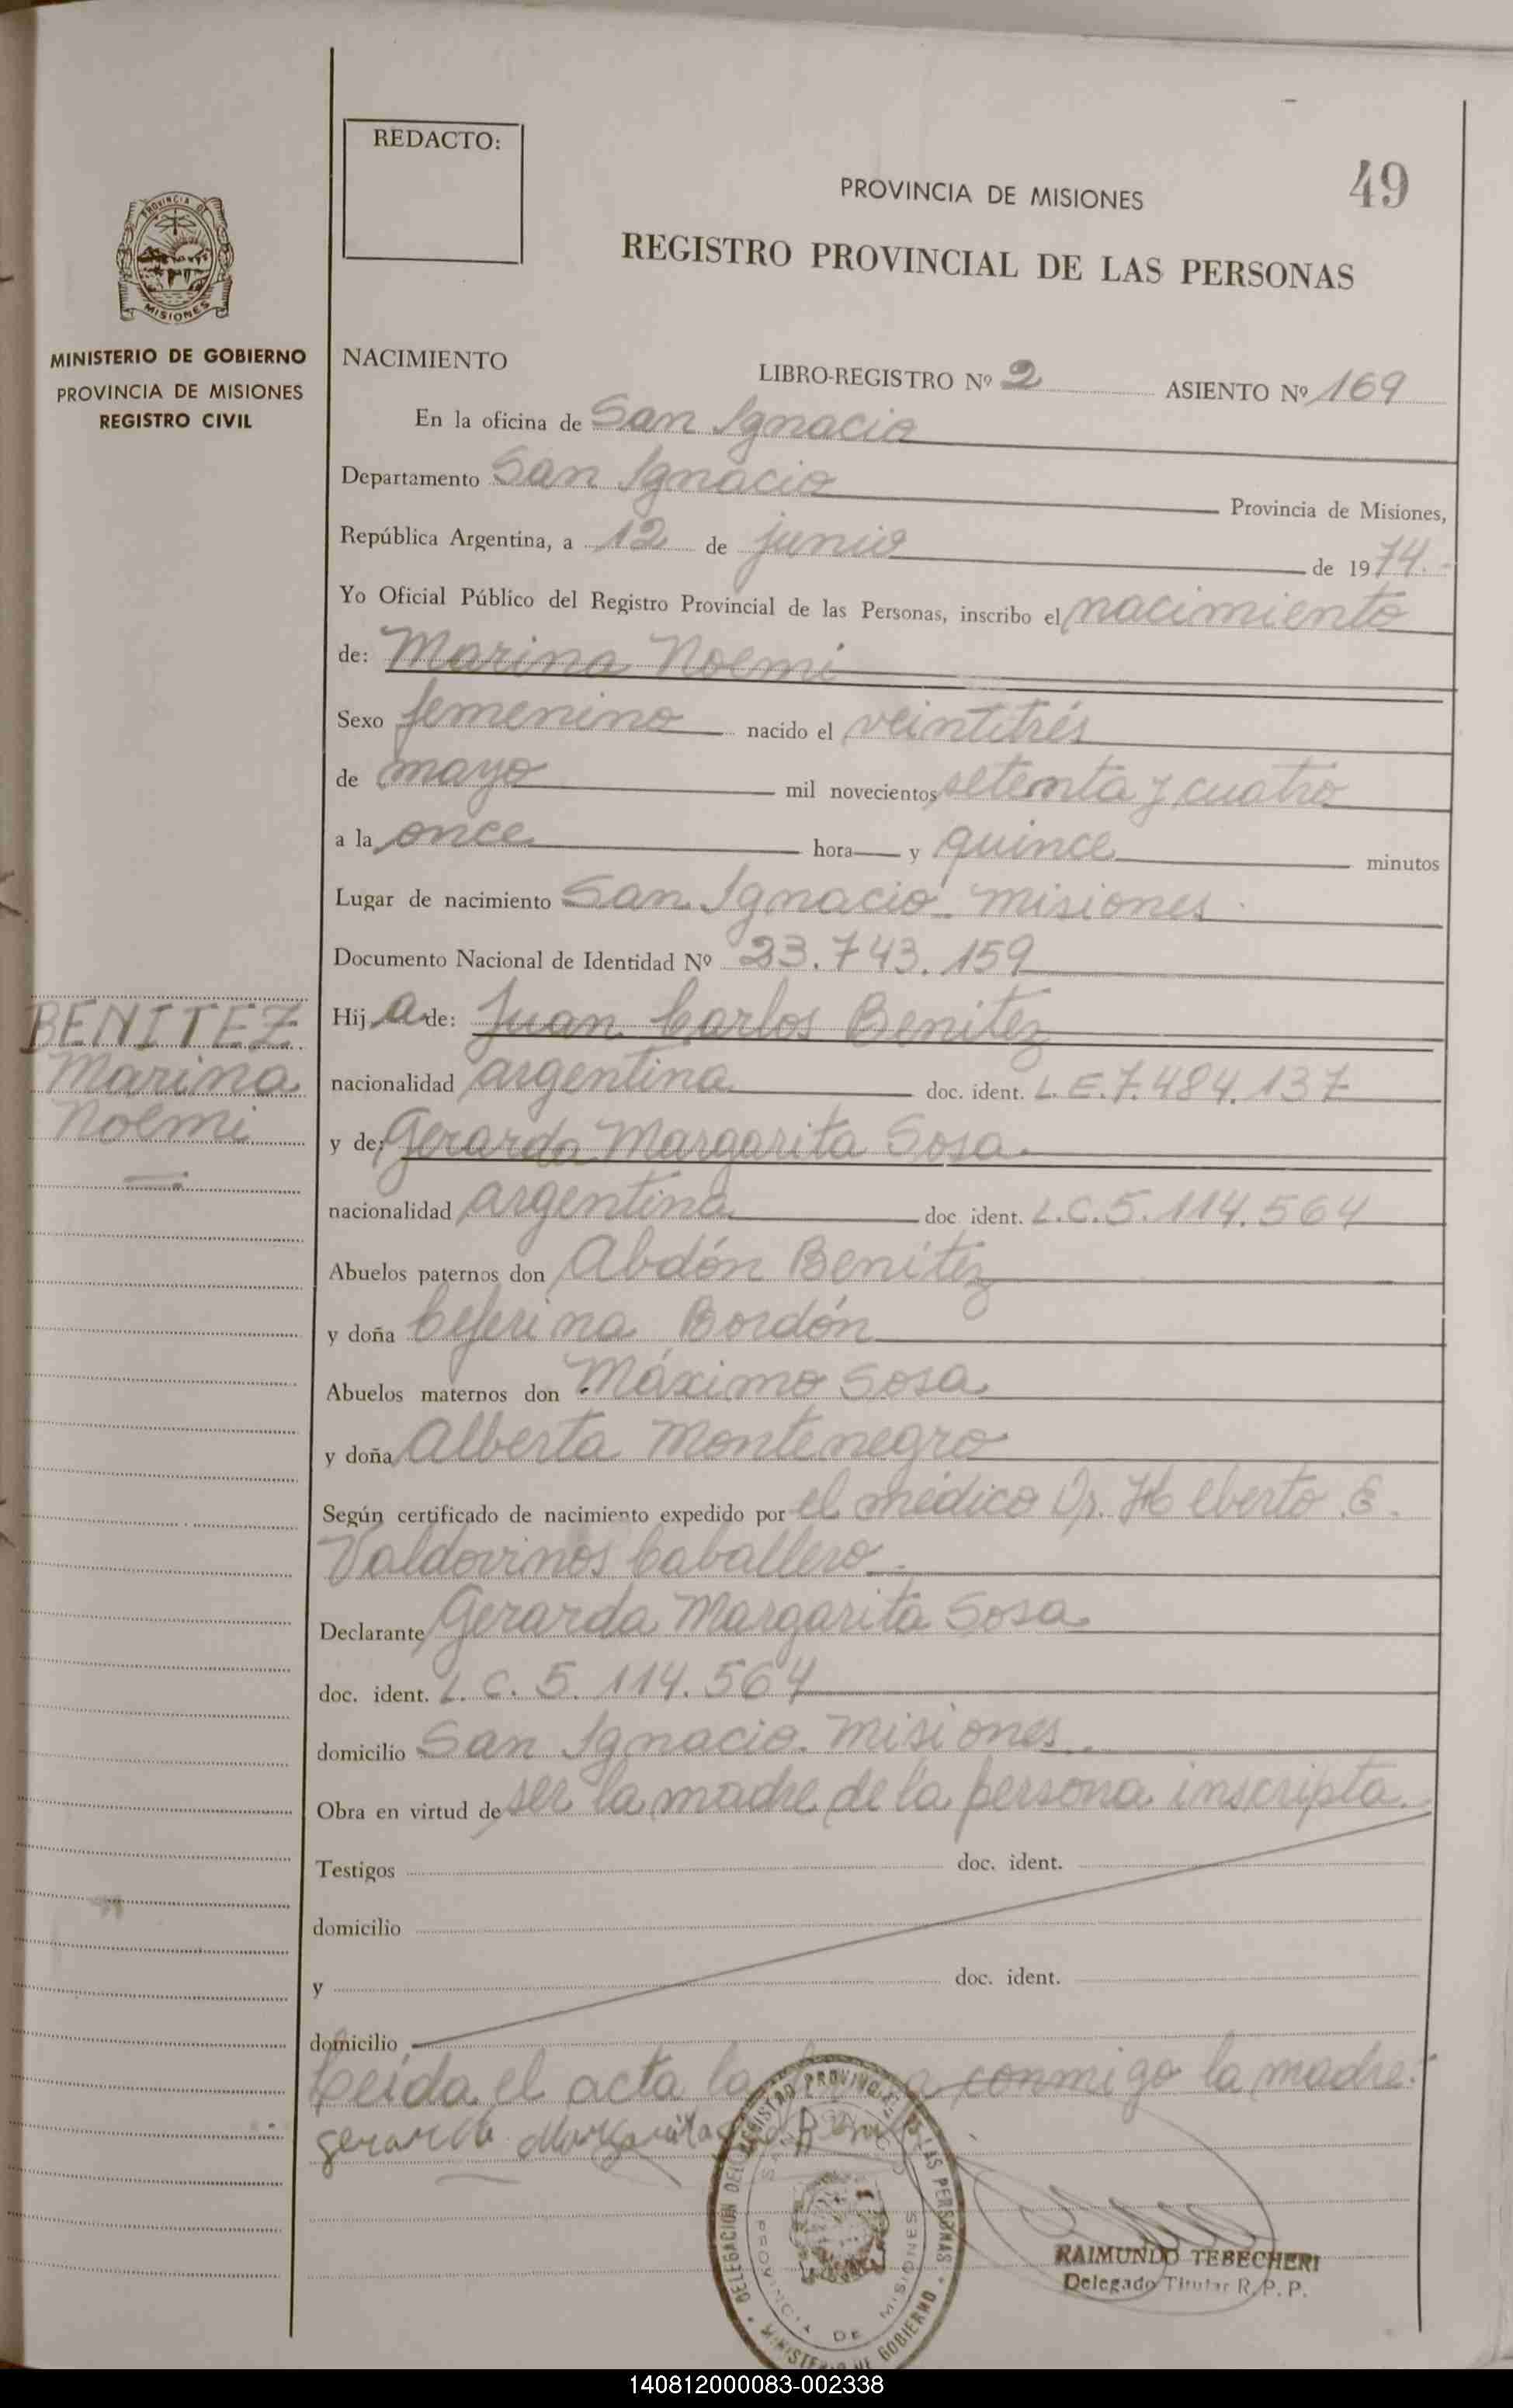 REDACTO:
PROVINCIA DE MISIONES
49
REGISTRO PROVINCIAL DE LAS PERSONAS
PROVINCIA DE
MISIONES
MINISTERIO DE GOBIERNO
PROVINCIA DE MISIONES
REGISTRO CIVIL
NACIMIENTO
LIBRO-REGISTRO Nº 2 ASIENTO Nº 169
En la oficina de San Ignacio
Departamento San Ignacio Provincia de Misiones,
República Argentina, a 12 de junio de 1974.-
Yo Oficial Público del Registro Provincial de las Personas, inscribo el nacimiento
de: Marina Noemi
Sexo femenino nacido el veintitrés
de mayo mil novecientos setenta y cuatro
a la once hora y quince minutos
Lugar de nacimiento San Ignacio. Misiones
Documento Nacional de Identidad Nº 23.743.159
BENITEZ
Marina
Noemi
Hij a de: Juan Carlos Benitez
nacionalidad argentina doc. ident. L.E.7.484.137
y de: Gerarda Margarita Sosa.
nacionalidad argentina doc ident. L.C.5.114.564
Abuelos paternos don Abdón Benítez
y doña Ceferina Bordón
Abuelos maternos don Máximo Sosa
y doña Alberta Montenegro
Según certificado de nacimiento expedido por el médico Dr. Heberto E.
Valdovinos Caballero.
Declarante Gerarda Margarita Sosa
doc. ident. L.C. 5.114.564
domicilio San Ignacio. Misiones.
Obra en virtud de ser la madre de la persona inscripta.
Testigos doc. ident.
domicilio
y doc. ident.
domicilio
Leída el acta la conmigo la madre.
gerarda Margarita
DELEGACION DEL REGISTRO PROVINCIAL DE LAS PERSONAS
MINISTERIO DE GOBIERNO
SAN IGNACIO
PROVINCIA DE MISIONES
RAIMUNDO TEBECHERI
Delegado Titular R.P.P.
140812000083-002338